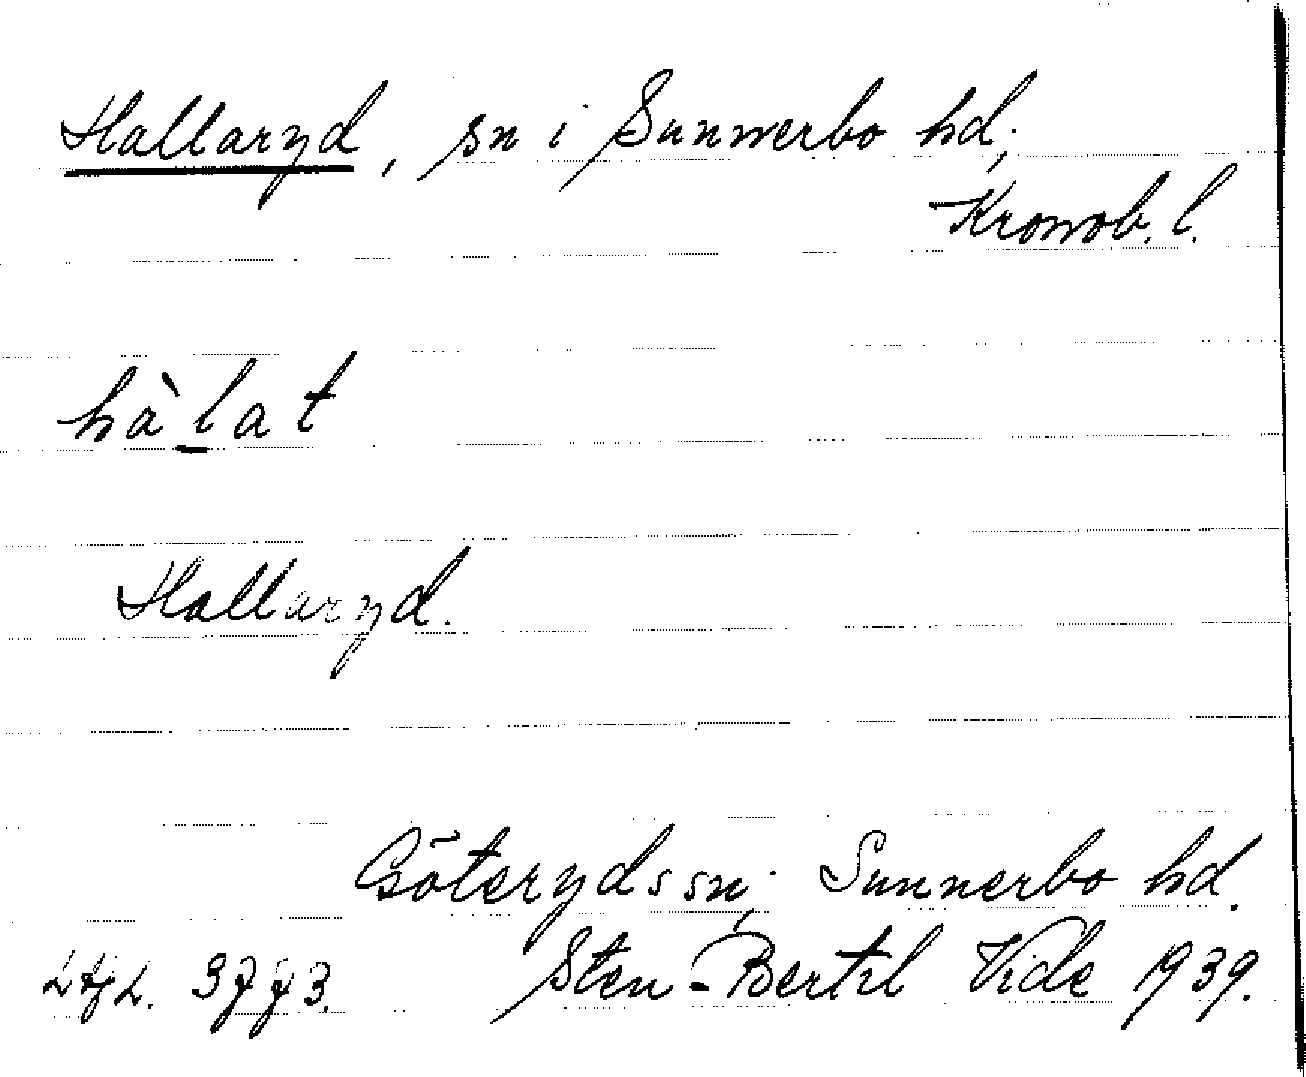 Hallaryd, sn i Sunnerbo hd;
Kronob. l.
hàlat
Hallaryd.
Göteryds sn; Sunnerbo hd.
Sten-Bertil Vide 1939.